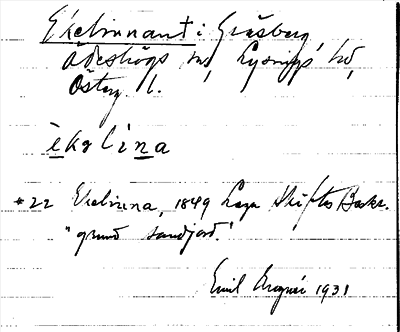 Ekelinnan t. i Gråsberg
Ödeshögs sn, Lysings hd,
Österg. l.
èkalína
*22 Ekelinna, 1849 Laga Skiftes Beskr.
"grund sandjord."
Emil 1931